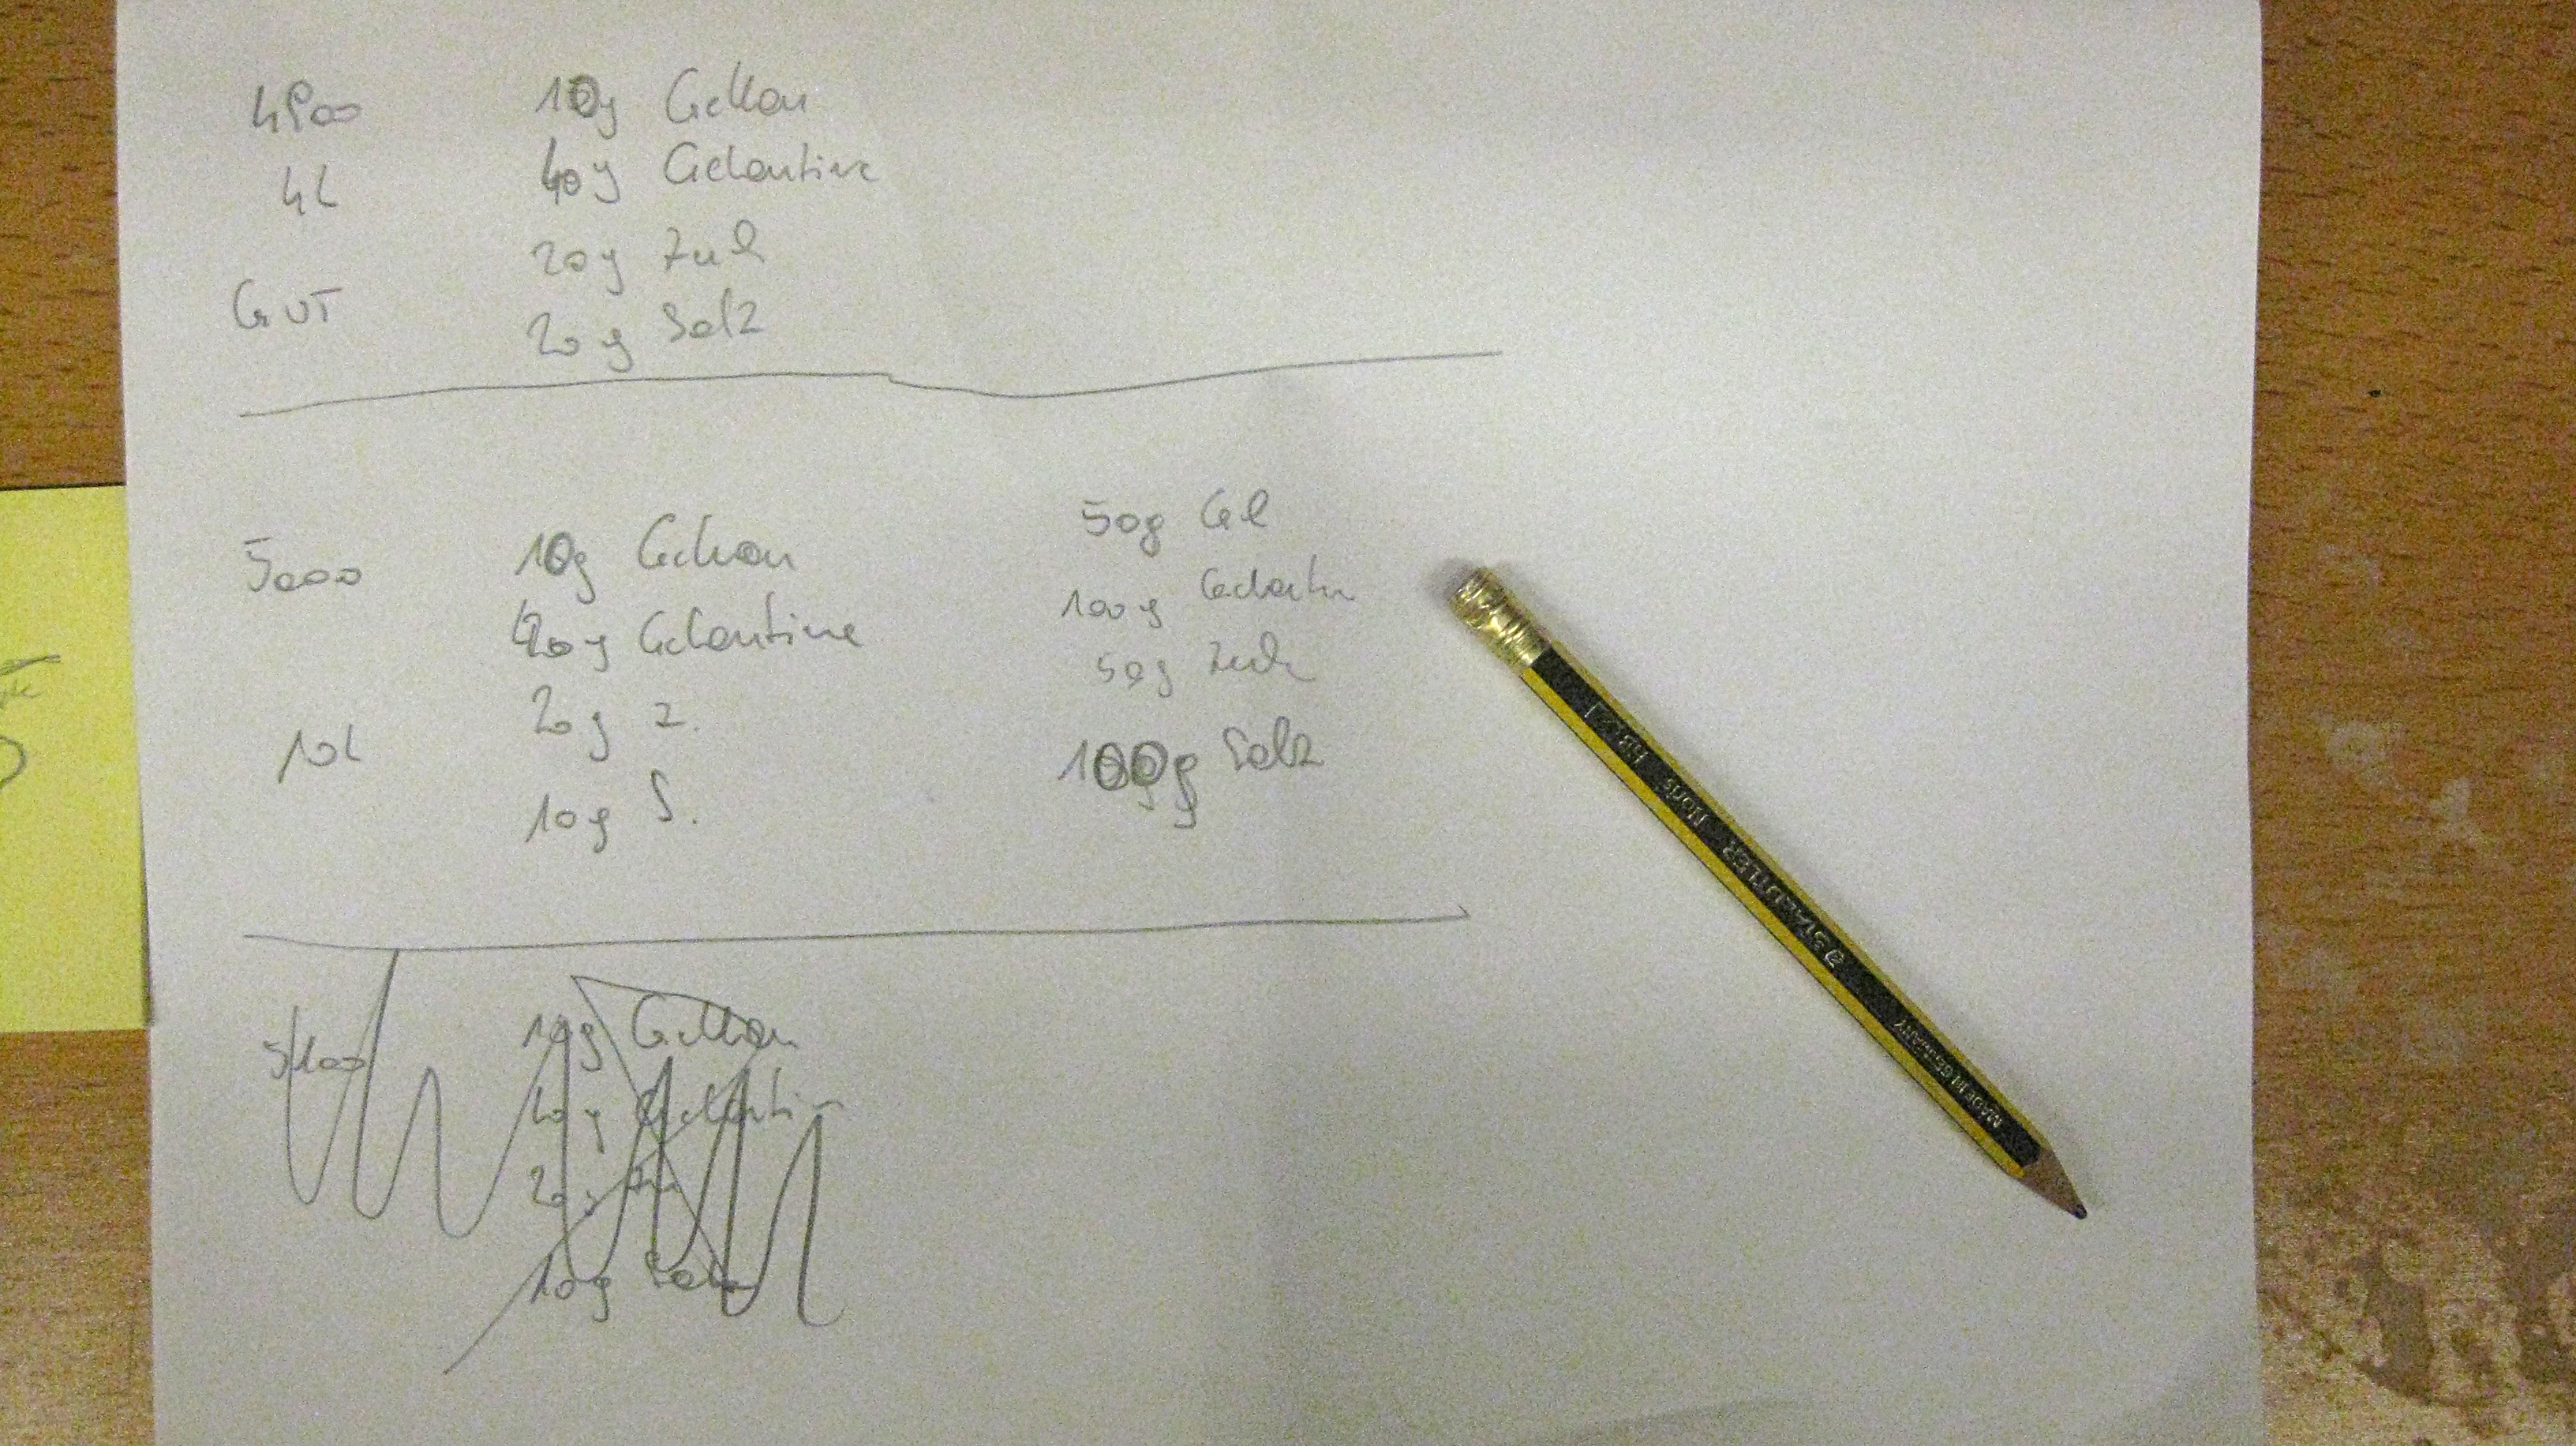 10g Gellan
4L 40g Gelantine
20g Zuck
GUT 20g Salz
5000 10g Gellan
Gelantine
20g Z.
10L 10g S.
50g Gel
100g Gelantin
50g Zuck
100g Salz
5100 10g Gellan
Gelantin
10g Salz
STAEDTLER Noris HB
MADE IN GERMANY